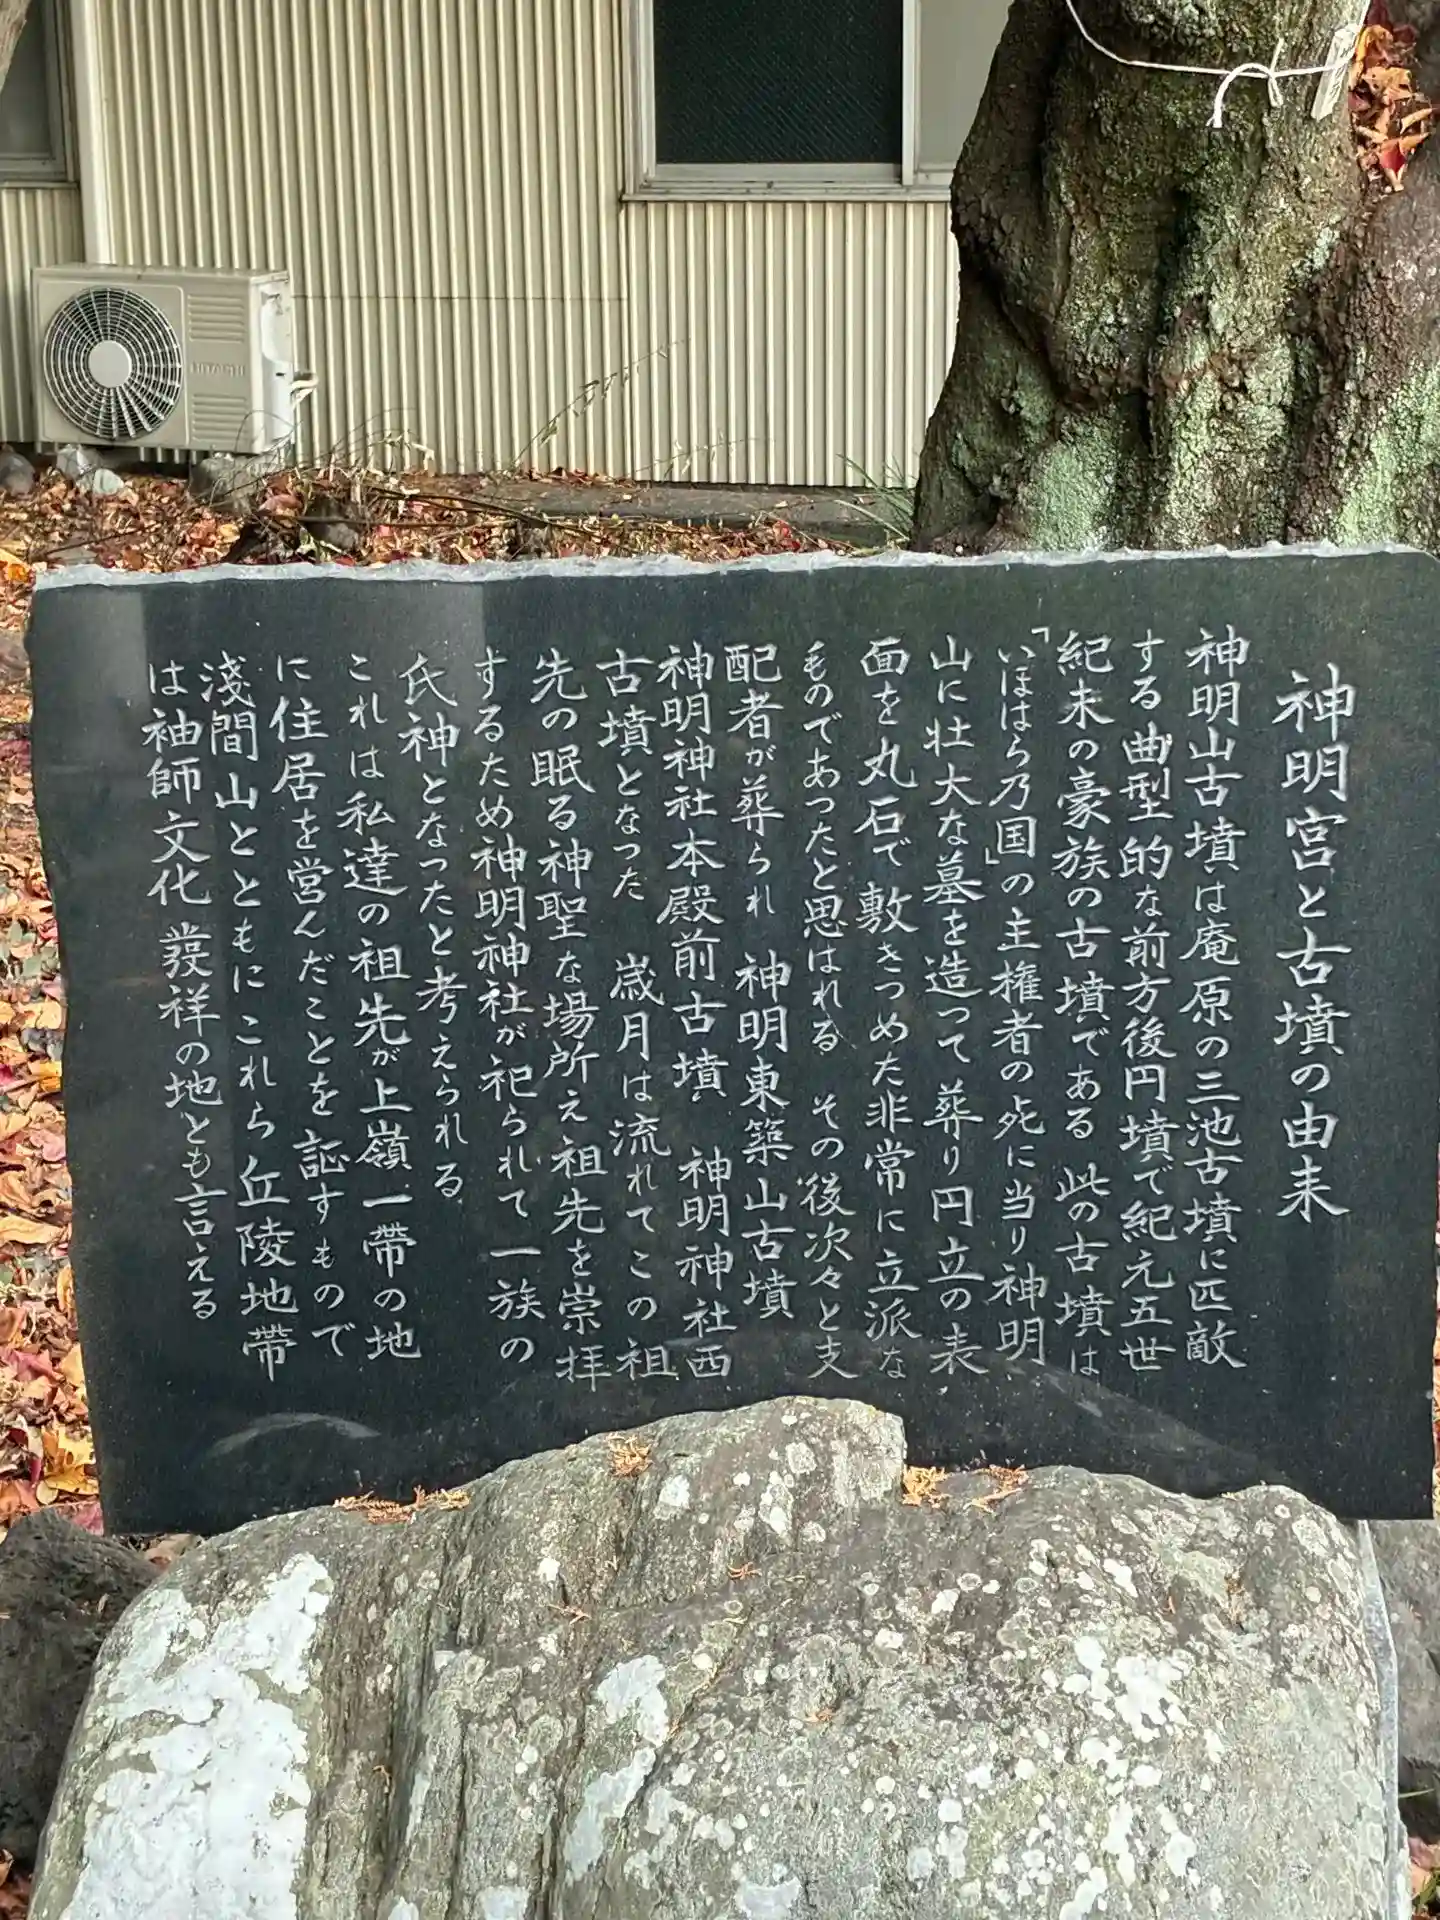 神明宮と古墳の由来
神明山古墳は庵原の三池古墳に匹敵
する曲型的な前方後円墳で紀元五世
紀末の豪族の古墳である 此の古墳は
「いほはら乃国」の主権者の死に当り神明
山に壮大な墓を造つて葬り円立の表
面を丸石で敷きつめた非常に立派な
ものであつたと思はれる その後次々と支
配者が葬られ 神明東築山古墳
神明神社本殿前古墳 神明神社西
古墳となつた 歳月は流れてこの祖
先の眠る神聖な場所え祖先を崇拝
するため神明神社が祀られて一族の
氏神となつたと考えられる
これは私達の祖先が上嶺一帯の地
に住居を営んだことを証すもので
淺間山とともにこれら丘陵地帯
は袖師文化発祥の地とも言える
HITACHI